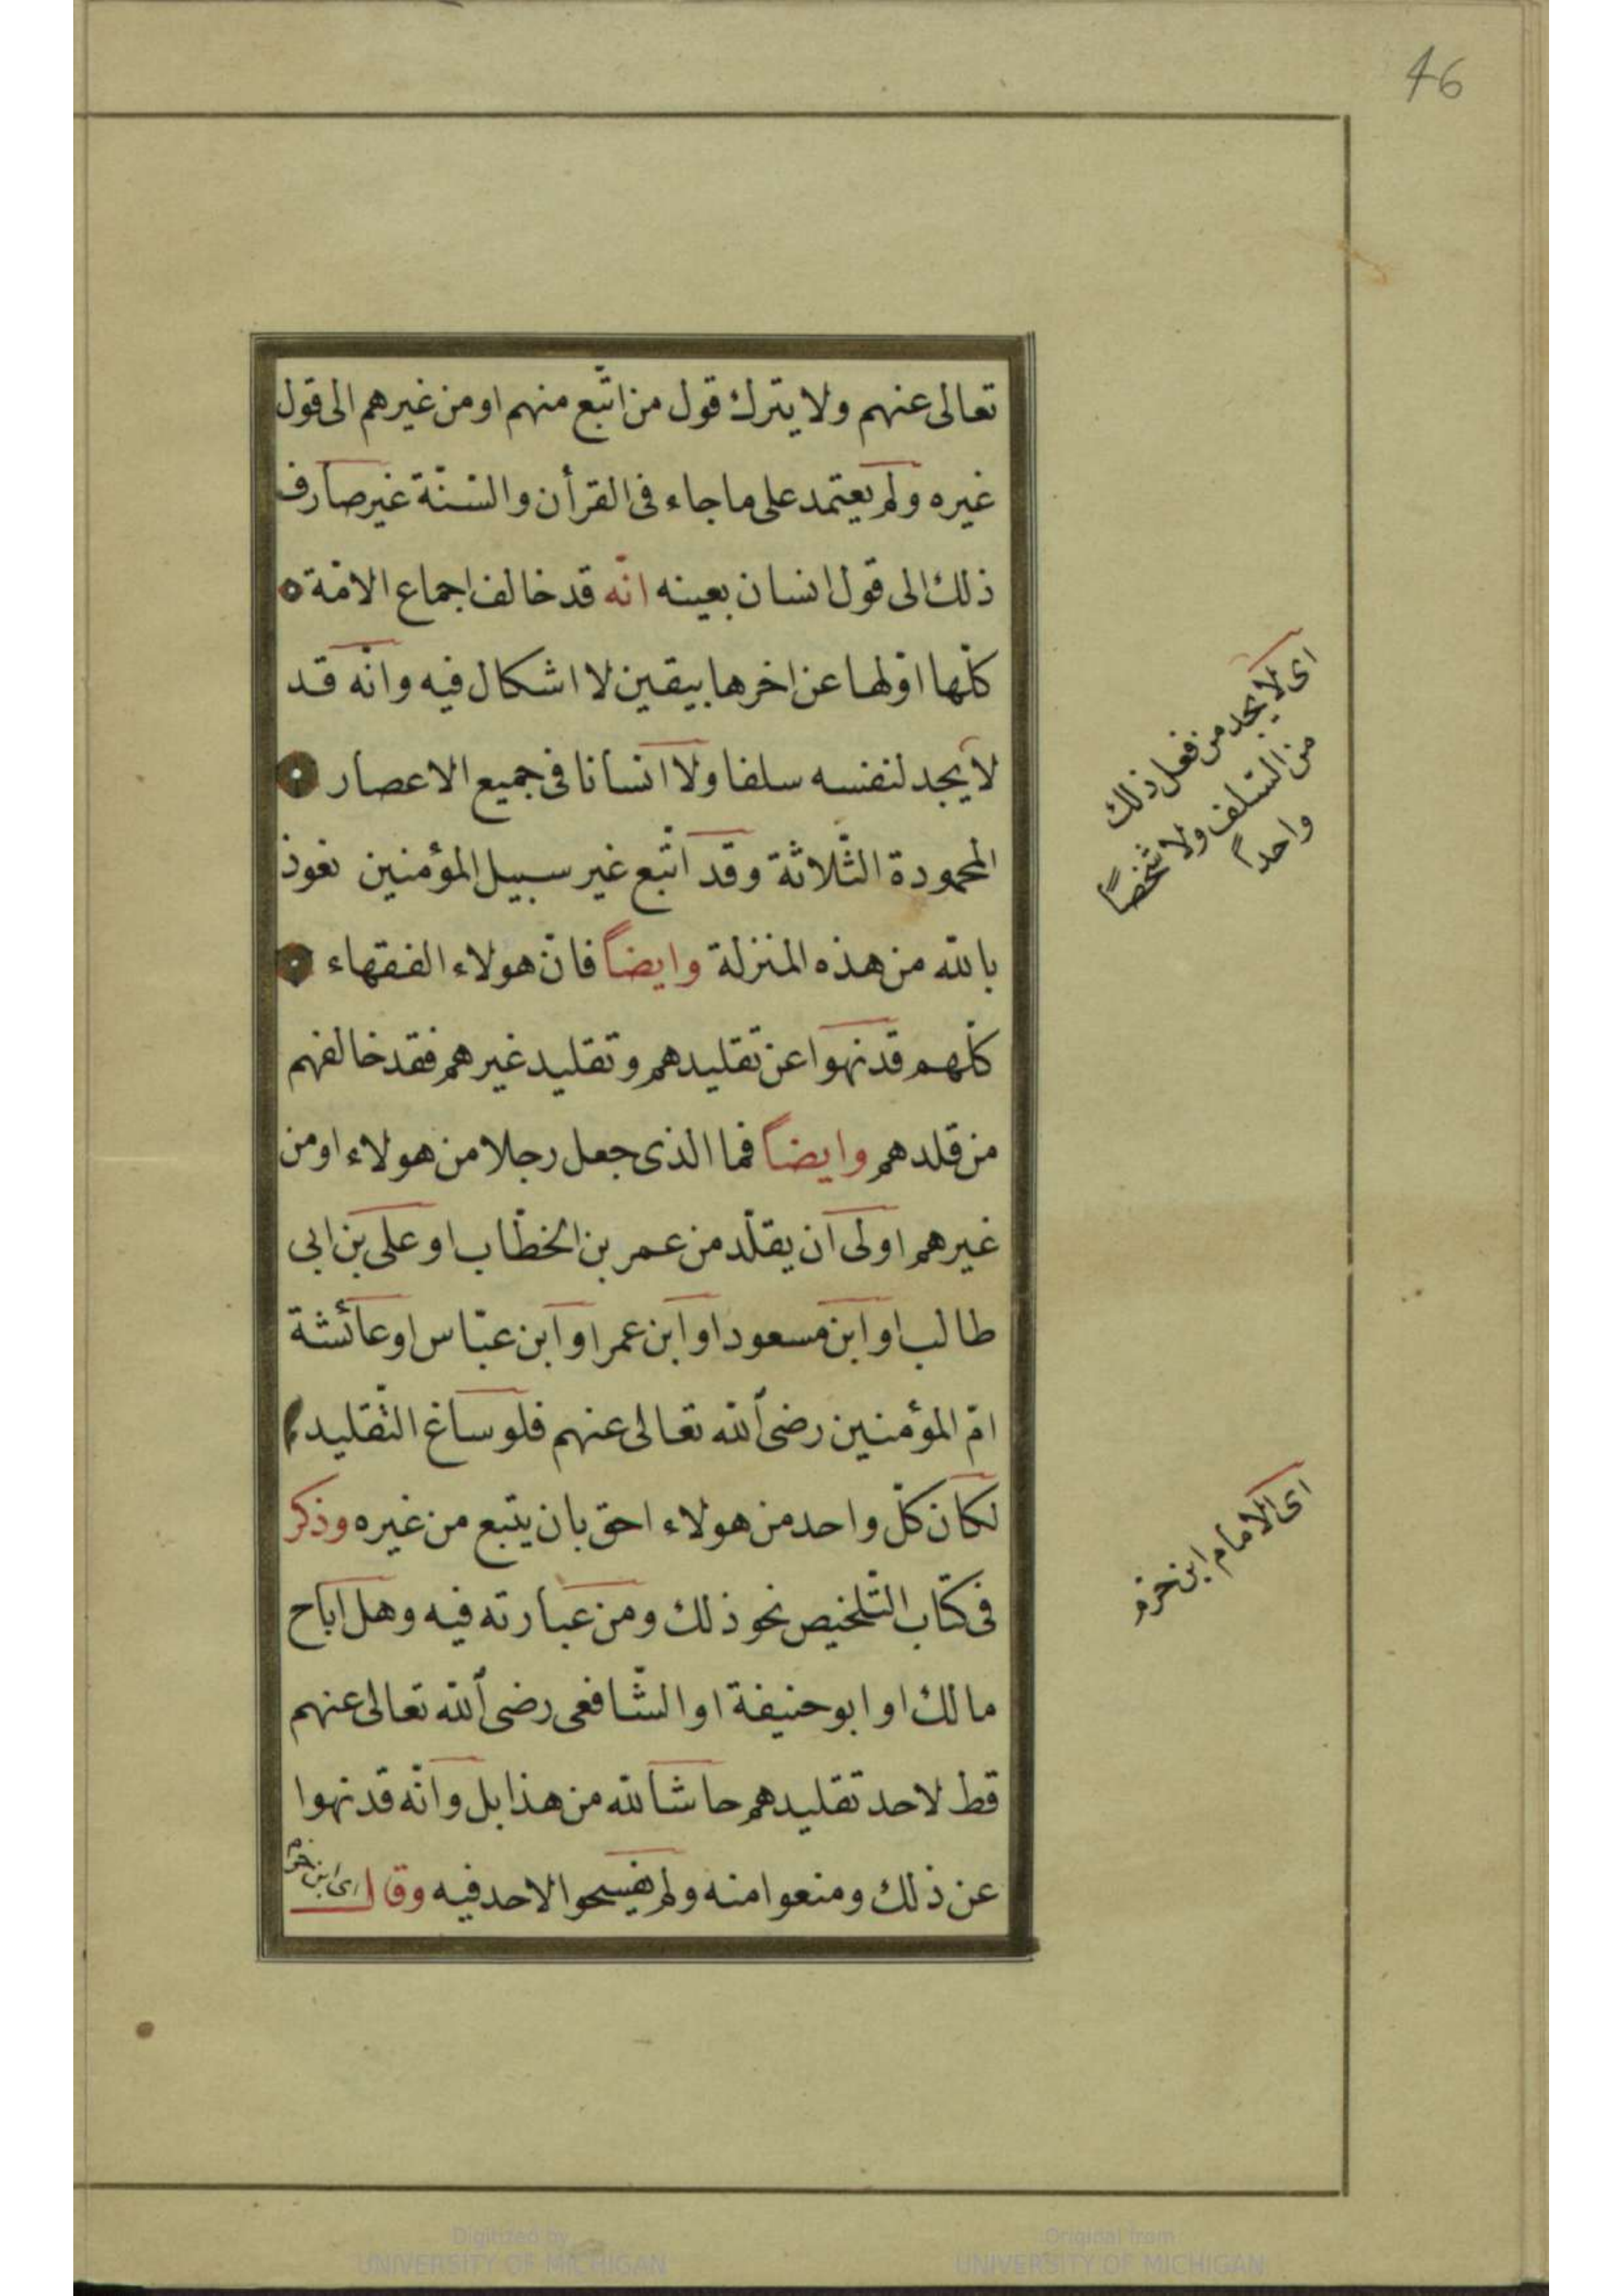 46
تعالى عنهم ولا يترك قول من اتّبع منهم او من غيرهم الى قول
غيره ولم يعتمد على ما جاء فى القرأن والسّنّة غير صارف
ذلك الى قول انسان بعينه انّه قد خالف اجماع الامّة
كلّها اوّلها عن اخرها بيقين لا اشكال فيه وانّه قد
لا يجد لنفسه سلفا ولا انسانا فى جميع الاعصار
المحمودة الثّلاثة وقد اتّبع غير سبيل المؤمنين نعوذ
بالله من هذه المنزلة وايضاً فانّ هولاء الفقهاء
كلّهم قد نهوا عن تقليدهم وتقليد غيرهم فقد خالفهم
من قلدهم وايضاً فما الذى جعل رجلا من هولاء او من
غيرهم اولى ان يقلّد من عمر بن الخطّاب او على بن ابى
طالب او ابن مسعود او ابن عمر او ابن عبّاس او عائشة
امّ المؤمنين رضى الله تعالى عنهم فلو ساغ التّقليد
لكان كلّ واحد من هولاء احق بان يتبع من غيره وذكر
فى كتاب التّلخيص نحو ذلك ومن عبارته فيه وهل اباح
مالك او ابو حنيفة او الشّافعى رضى الله تعالى عنهم
قط لاحد تقليدهم حاشا لله من هذا بل وانّه قد نهوا
عن ذلك ومنعوا منه ولم يفسحوا لاحد فيه وقال
اى ابن حزم
اى لا يجد من فعل ذلك
من السّلف ولا شخصاً
واحداً
اى الامام ابن حزم
Digitized by
UNIVERSITY OF MICHIGAN
Original from
UNIVERSITY OF MICHIGAN